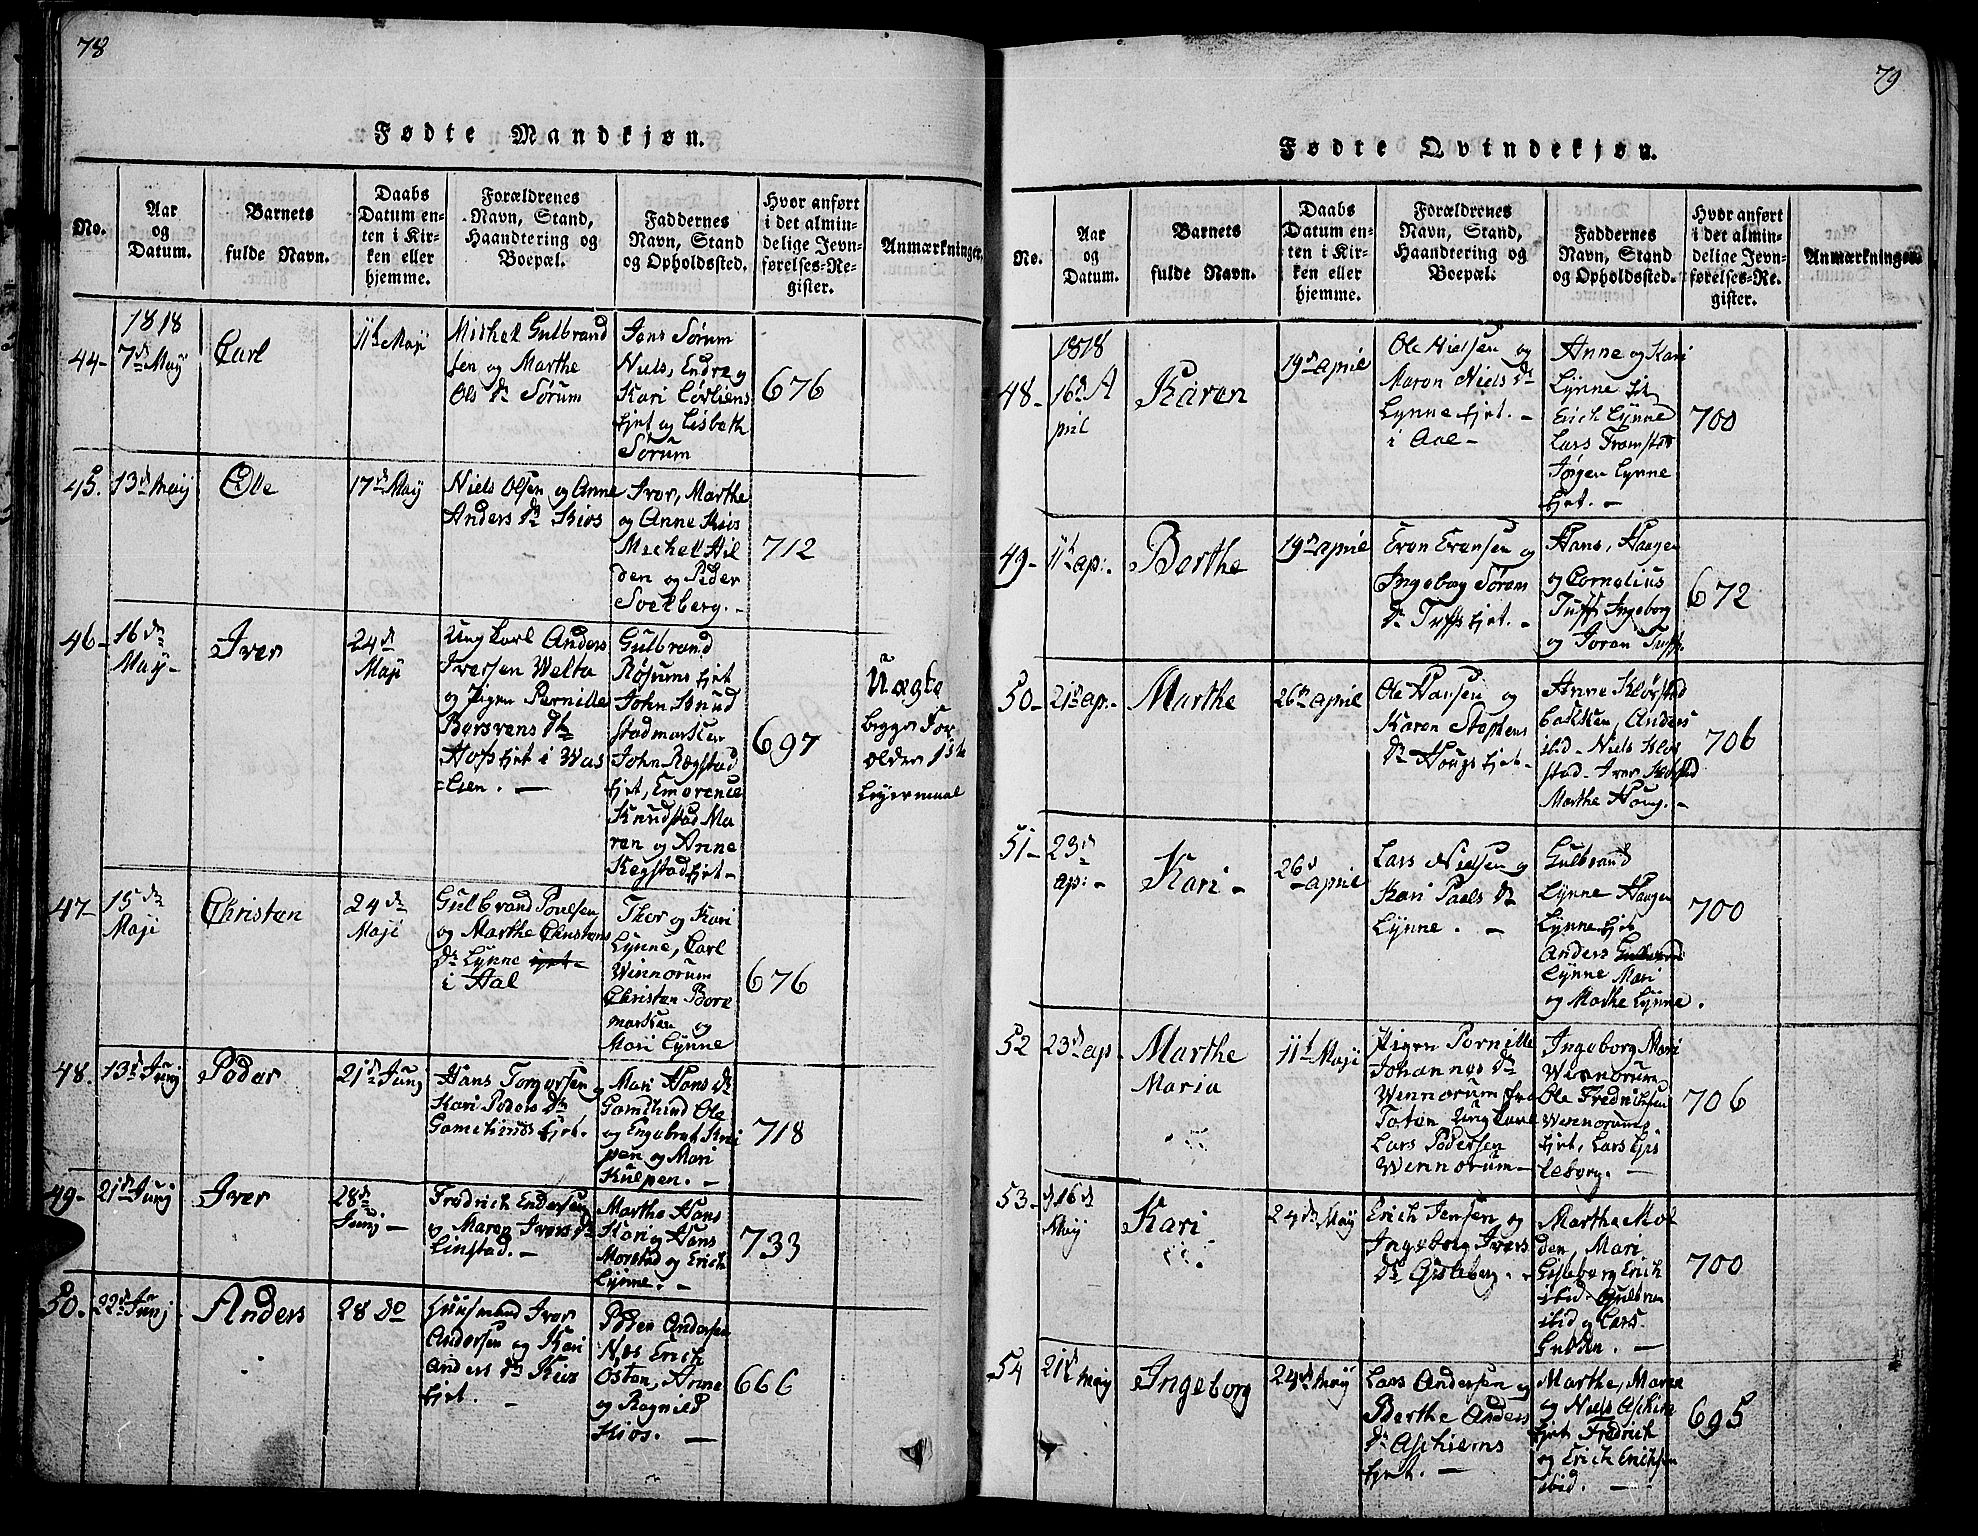 78
Fødte Mandkjøn.
No.
Aar
og
Datum.
Barnets
fulde Navn.
Daabs
Datum en-
ten i Kir-
ken eller
hjemme.
Forældrenes
Navn, Stand,
Haandtering og
Boepæl.
Faddernes
Navn, Stand
og Opholdssted.
Hvor anført
i det almin-
delige Jevn-
førelses-Re-
gister.
Anmærkninger.
44-
1818
7de May
Carl
11t Maji
Michel Gulbrand
sen og Marthe
Ols Dr Sørum
Jens Sørum
Niels, Endre og
Kari Løvliens
Ejet og Lisbeth
Sørum
676
45.
13de May
Ole
17de May
Niels Olsen og Anne
Anders Dr Kios
Iver, Marthe
og Anne Kios
Michel Hil
den og Peder
Soelberg.-
712
46-
16de
May-
Iver
24de
Maji
Ung Karl Anders
Iversen Welta
og Pigen Pernille
Hofs Ejet i Was
Gulbrand
Røsums Ejet
John Knud
stadmarken
John Regstad
Ejet, Emerence
Knudstad Ma
ren og Anne
Regstad Ejet-
697
Uægte
begge For
ældres 1ste
Leyermaal
47-
15de
Maji
Christen
24de
Maji
Gulbrand Poulsen
og Marthe Christens
Dr Lynne Ejet-
i Aal
Thor og Kari
Lynne, Carl
Winnorum
Christen Bore
marken og
Mari Lynne
676
48.
13de Junj
Peder
21de Junj
Hans Torgersen og
Kari Peders Dr
Mari Hans Dr
Ole
og Engebret
og Mari
Kulpen.-
718
49-
21de Junj
Iver
28de
Junj-
Fredrich Endersen
og Maren Ivers Dr
Linstad.-
Marthe Hans
Kari og Hans
Morstad og Erich
Lynne.-
733
50.
22de Junj
Anders
28 do
Huusmand Iver
Andersen og Kari
Anders Dr Kios
Ejet.-
Peder Andersen
Næs Erich
Osten, Anne
og Ragnild
Kios.-
666
79
Fødte Qvindekjøn.
No.
Aar
og
Datum.
Barnets
fulde Navn.
Daabs
Datum en-
ten i Kir-
ken eller
hjemme.
Forældrenes
Navn, Stand,
Haandtering og
Boepæl.
Faddernes
Navn, Stand
og Opholdssted.
Hvor anført
i det almin-
delige Jevn-
førelses-Re-
gister.
Anmærkninger
48-
1818
16de A
pril
Karen
19de april
Ole Nielsen og
Maren Niels Dr
Lynne Ejet.-
i Aal-
Anne og Kari
Lynne
Erich Lynne
Lars
Jørgen Lynne
Ejet.-
700
49-
11t ap:
Berthe
19de april
Even Evensen og
Ingeborg Sørens
Dr Tufft Ejet.-
Hans, Haagen
og Cornelius
Tufft Ingeborg
og Joran Tufft
672
50-
21de ap:
Marthe
26de april
Ole Hansen og
Karen Stephens
Dr Hougs Ejet-
Anne
bakken, Anders
ibid- Niels
stad- Iver
Marthe Houg.-
706
51-
23de
ap:-
Kari-
26de
april
Lars Nielsen og
Kari Paals Dr
Lynne.-
Gulbrand
Lynne Haagen
Lynne Ejet
Anders
Lynne Mari
og Marthe Lynne.
700
52
23de ap
Marthe
Maria
11t Maji
Pigen Pernille
Johannes Dr
Winnorum fra
Toten Ung Karl
Lars Pedersen
Winnorum-
Ingeborg, Mari
Winnorum
Ole Fredrichsen
Winnorums
Ejet, Lars Gis
leborg.-
706
53-
d 16de
May
Kari
24de May
Erich Jensen og
Ingeborg Ivers
Dr Gisleberg.-
Marthe Mol
den, Mari
Gisleborg Erich
ibid. Gulbran
ibid og Lars
Lunden.-
700
54
21de May
Ingeborg
24de May
Lars Andersen og
Berthe Anders
Dr Aschiems
Ejet.-
Marthe, Maria
og Niels Aschim
Ejet Fredrich
og Erich Erichsen
ibid.-
695